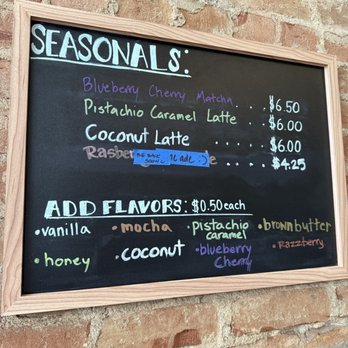 SEASONALS:
Blueberry Cherry Matcha . . . . $6.50
Pistachio Caramel Latte . . . $6.00
Coconut Latte . . . . $6.00
. . . . . $4.25
ADD FLAVORS: $0.50 each
•vanilla •mocha •Pistachio caramel •brown butter
•honey •coconut •blueberry Cherry •Razzberry